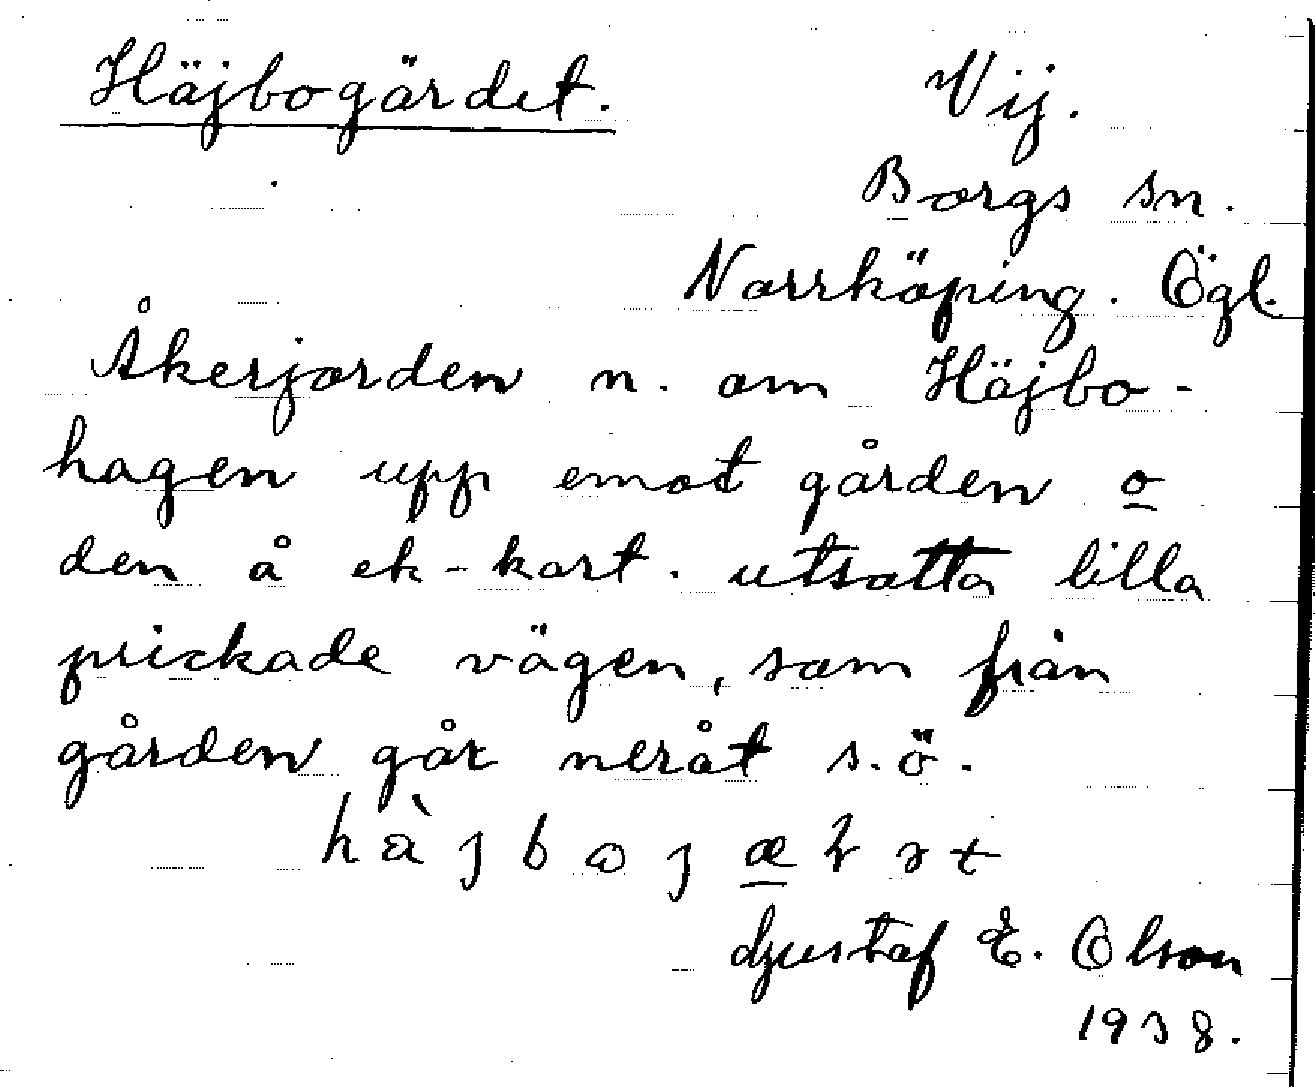 Häjbogärdet.
Vij.
Borgs sn.
Norrköping. Ögl.
Åkerjorden n. om Häjbo-
hagen upp emot gården o
den å ek-kart. utsatta lilla
prickade vägen, som från
gården går neråt s.ö.
Gustaf E. Olson
1938.